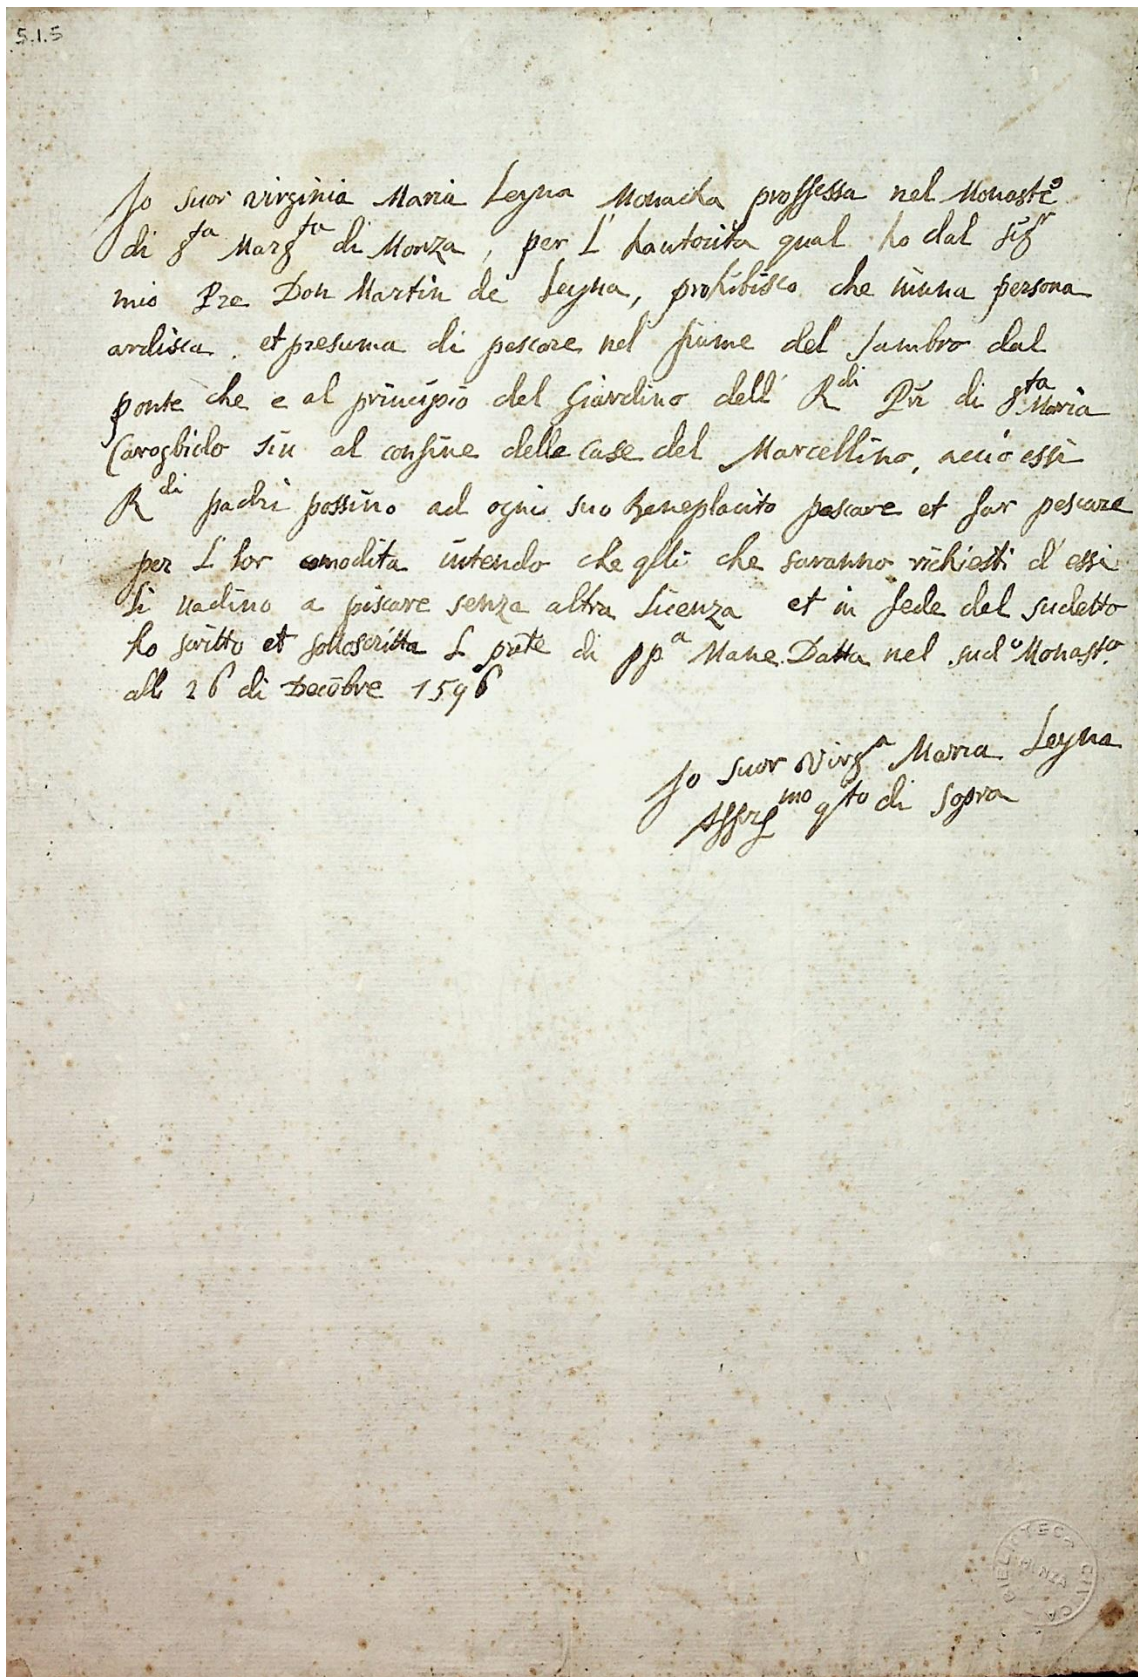 5.1.5
Jo suor virginia Maria Leyna Monacha proffessa nel Monaste.º
di S.ta Marg.ta di Monza, per L' hautorita qual ho dal Sig.r
mio Pre Don Martin de Leyna, prohibisco che niuna persona
ardisca et presuma di pescare nel fiume del Lambro dal
ponte che e al principio del Giardino dell' R.di Pri di S.ta Maria
Carogbiolo sin al confine delle case del Marcellino, acciò essi
R.di padri possino ad ogni suo beneplacito pescare et far pescare
per L' lor comodita intendo che qlli che saranno richiesti d' essi
li vadino a piscare senza altra licenza et in fede del sudetto
ho scritto et sottoscritta L prnte di pp.a Mane. Datta nel sud.o Monast.o
alli 26 di Decēbre 1596
Jo suor Virg.a Maria Leyna
Affer.mo q.to di sopra
BIBLIOTECA CIVICA
MONZA